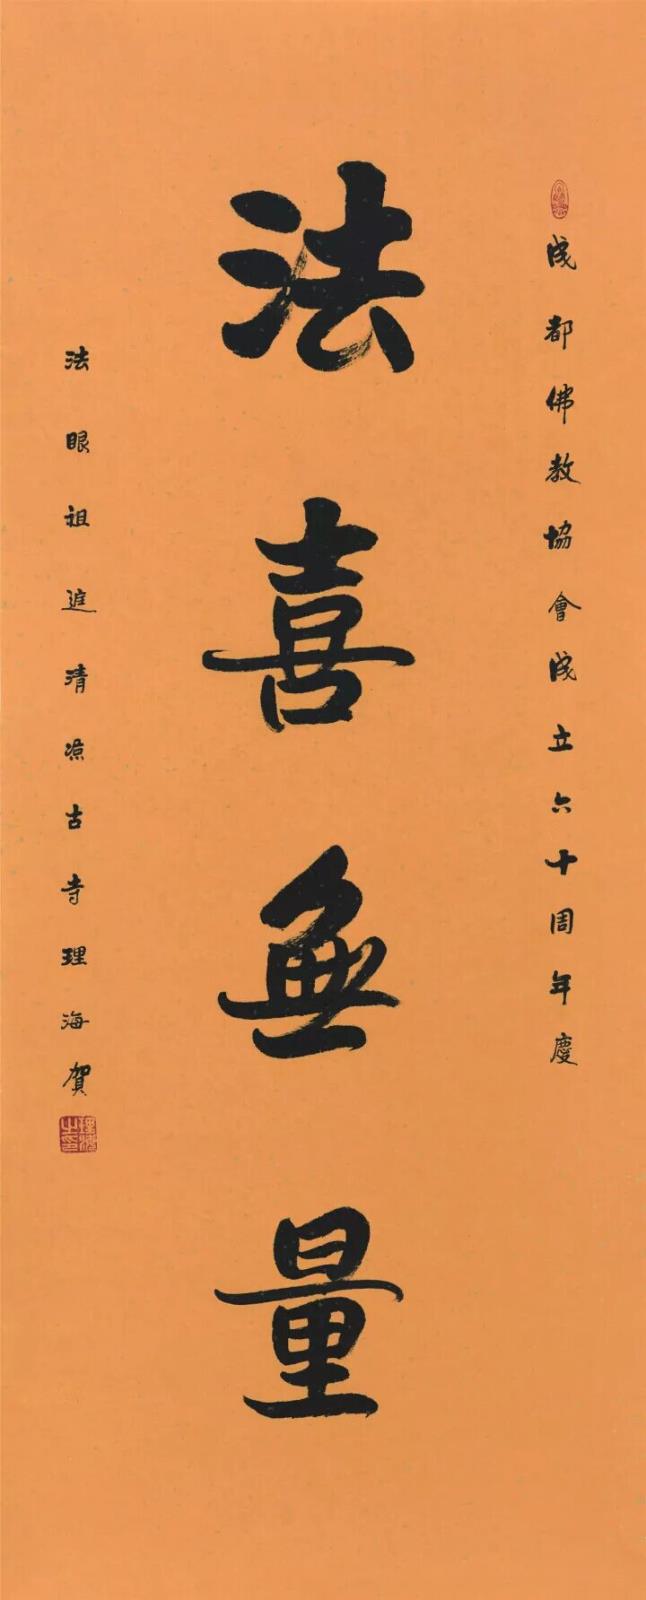 成都佛教協會成立六十周年慶
法喜無量
法眼祖庭清凉古寺理海賀
理海之印